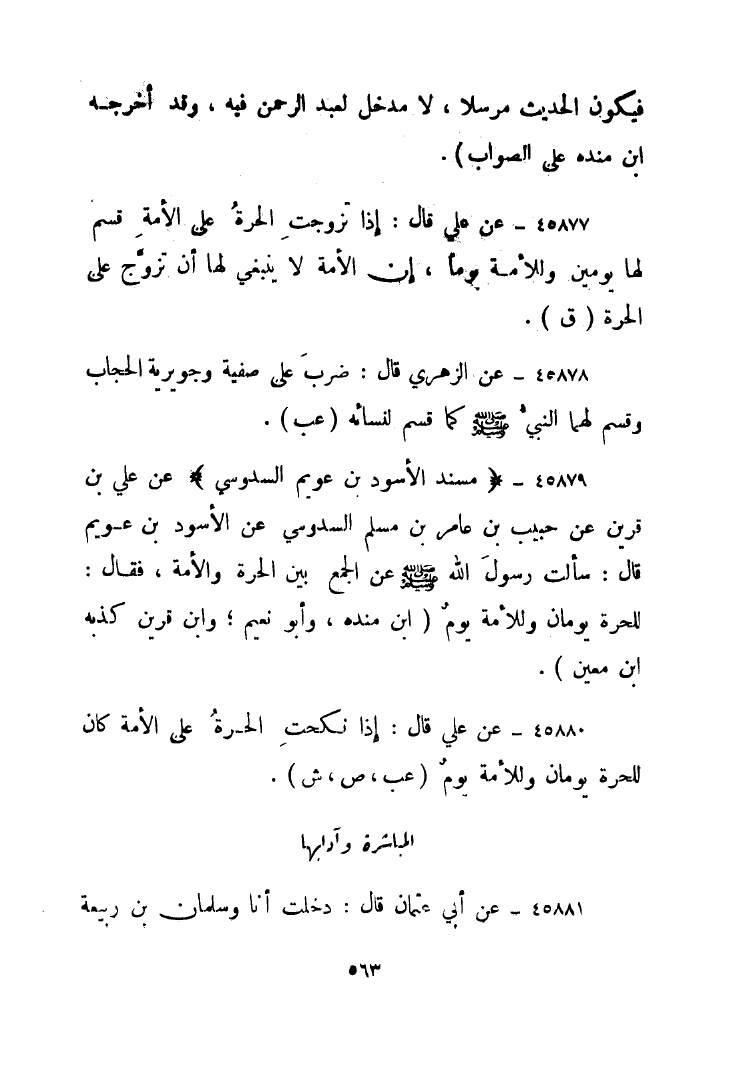 فيكون الحديث مرسلا ، لا مدخل لعبد الرحمن فيه ، وقد أخرجه
ابن منده على الصواب ) .
٤٥٨٧٧ – عن علي قال : إذا تزوجتِ الحرةُ على الأمةِ قسم
لها يومين وللأمة يوماً ، إن الأمة لا ينبغي لها أن تزوَّج على
الحرة ( ق ) .
٤٥٨٧٨ – عن الزهري قال : ضربَ على صفية وجويرية الحجاب
وقسم لهما النبيُّ ﷺ كما قسم لنسائه ( عب ) .
٤٥٨٧٩ – ﴿ مسند الأسود بن عويم السدوسي ﴾ عن علي بن
قرين عن حبيب بن عامر بن مسلم السدوسي عن الأسود بن عويم
قال : سألت رسولَ الله ﷺ عن الجمع بين الحرة والأمة ، فقال :
للحرة يومان وللأمة يومٌ ( ابن منده ، وأبو نعيم ؛ وابن قرين كذبه
ابن معين ) .
٤٥٨٨٠ – عن علي قال : إذا نكحتِ الحرةُ على الأمة كان
للحرة يومان وللأمة يومٌ ( عب ، ص ، ش ) .
المباشرة وآدابها
٤٥٨٨١ – عن أبي عثمان قال : دخلت أنا وسلمان بن ربيعة
٥٦٣